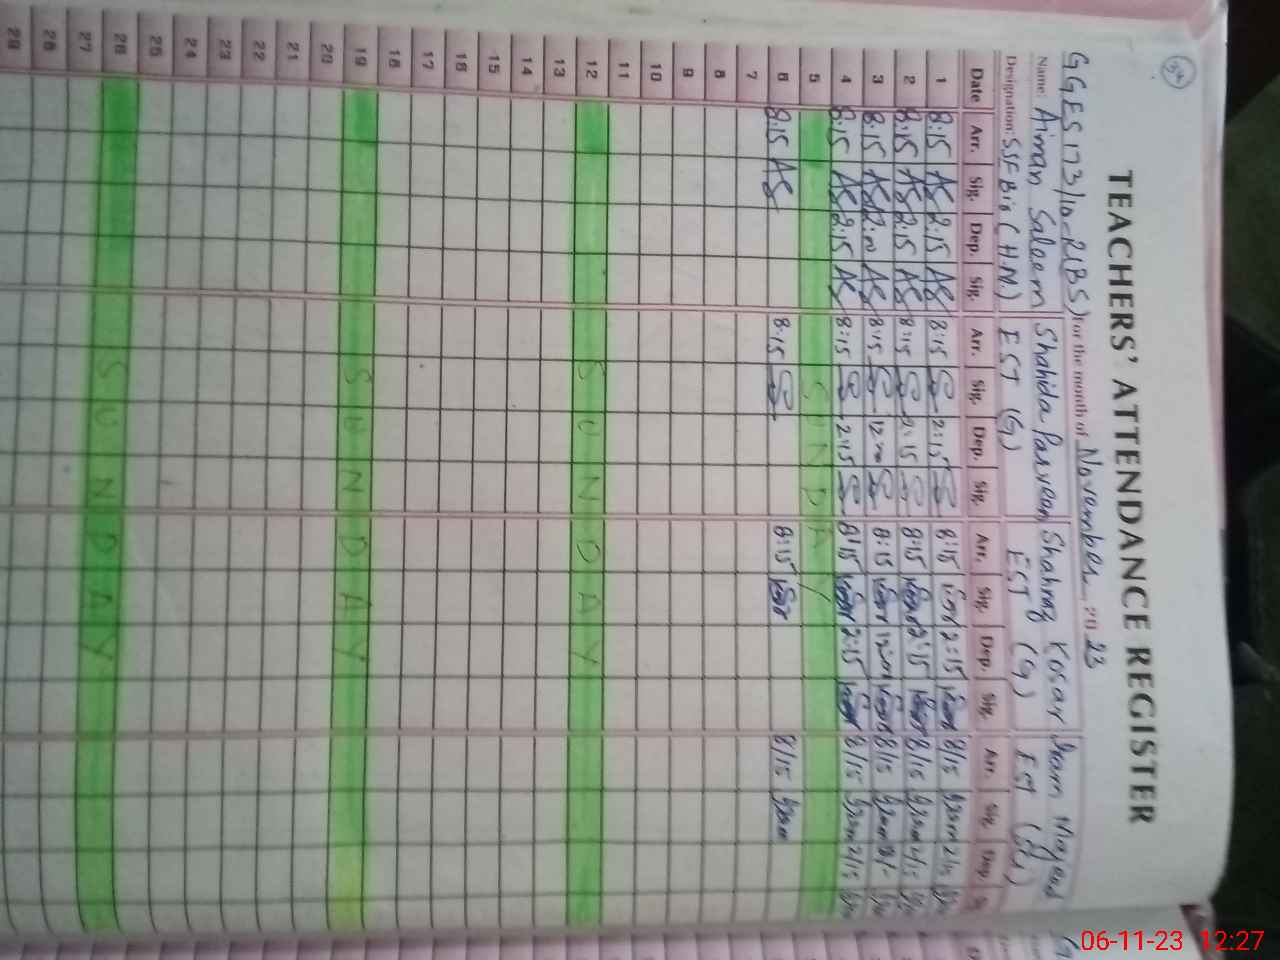 TEACHERS' ATTENDANCE REGISTER
GGES 173/10-R(BS) for the month of November 2023
Name: Aiman Saleem Shahida Parveen Shahnaz Kosar Iram Majeed
Designation: SSE Bio (H.M) EST (G) EST (G) EST
Date Arr. Sig. Dep. Sig. Arr. Sig. Dep. Sig. Arr. Sig. Dep. Sig. Arr. Sig. Dep.
1 8:15 AS 2:15 AS 8:15 2:15 8:15 2:15 8/15 2/15
2 8:15 AS 2:15 AS 8:15 2:15 8:15 2:15 8/15 2/15
3 8:15 AS AS 8:15 8:15 8/15
4 8:15 AS 2:15 AS 8:15 2:15 8:15 2:15 8/15 2/15
5 SUNDAY
6 8:15 AS 8:15 8:15 8/15
7
8
9
10
11
12 SUNDAY
13
14
15
16
17
18
19 SUNDAY
20
21
22
23
24
25
26 SUNDAY
27
28
29
06-11-23 12:27